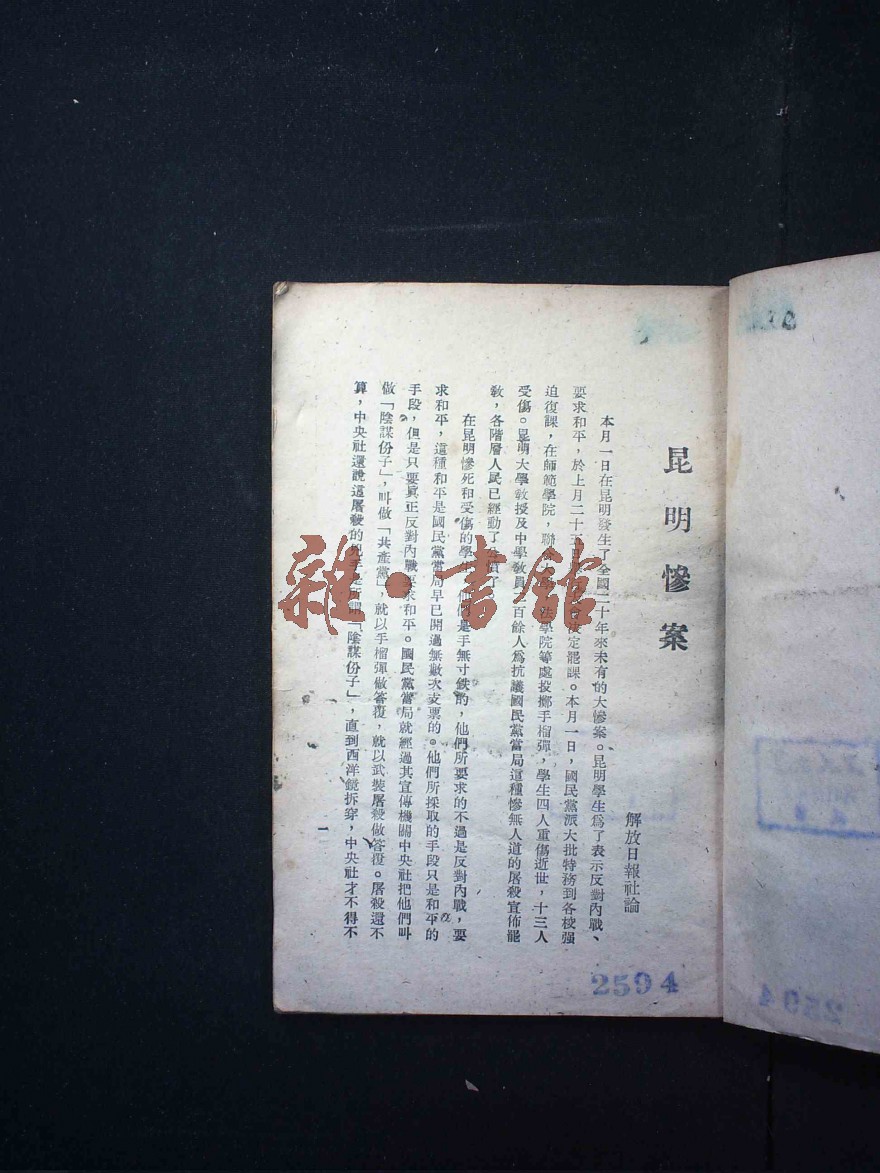 昆明慘案
解放日報社論
本月一日在昆明發生了全國二十年來未有的大慘案。昆明學生爲了表示反對內戰、
要求和平,於上月二十五 決定罷課。本月一日,國民黨派大批特務到各校强
迫復課,在師範學院,聯 法學院等處投擲手榴彈,學生四人重傷逝世,十三人
受傷。昆明大學教授及中學教員二百餘人爲抗議國民黨當局這種慘無人道的屠殺宣佈罷
教,各階層人民已經動了 憤了
在昆明慘死和受傷的學 他們是手無寸鉄的,他們所要求的不過是反對內戰,要
求和平,這種和平是國民黨當局早已開過無數次支票的。他們所採取的手段只是和平的
手段,但是只要眞正反對內戰要求和平。國民黨當局就經過其宣傳機關中央社把他們叫
做「陰謀份子」,叫做「共產黨」,就以手榴彈做答覆,就以武裝屠殺做答覆。屠殺還不
算,中央社還說這屠殺的兇手是所謂「陰謀份子」,直到西洋鏡拆穿,中央社才不得不
一
2594
雜·書館